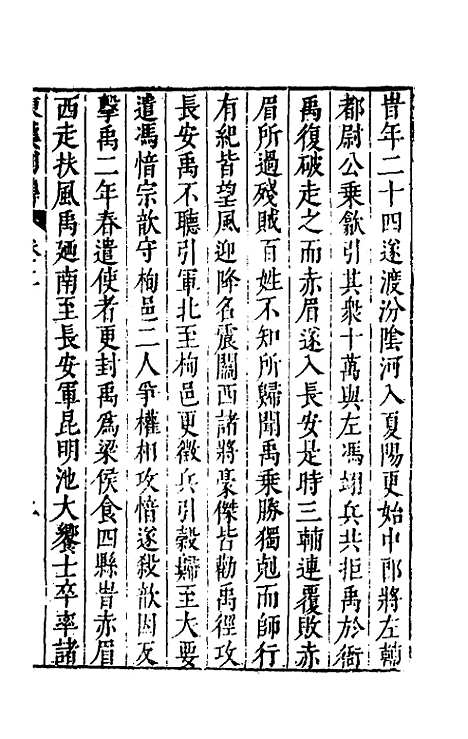 旹年二十四遂渡汾陰河入夏陽更始中郎將左輔
都尉公乘歙引其衆十萬與左馮翊兵共拒禹於衙
禹復破走之而赤眉遂入長安是時三輔連覆敗赤
眉所過殘賊百姓不知所歸聞禹乘勝獨剋而師行
有紀皆望風迎降名震關西諸將豪傑皆勸禹徑攻
長安禹不聽引軍北至栒邑更徵兵引穀歸至大要
遣馮愔宗歆守栒邑二人爭權相攻愔遂殺歆因反
擊禹二年春遣使者更封禹爲梁侯食四縣旹赤眉
西走扶風禹廼南至長安軍昆明池大饗士卒率諸